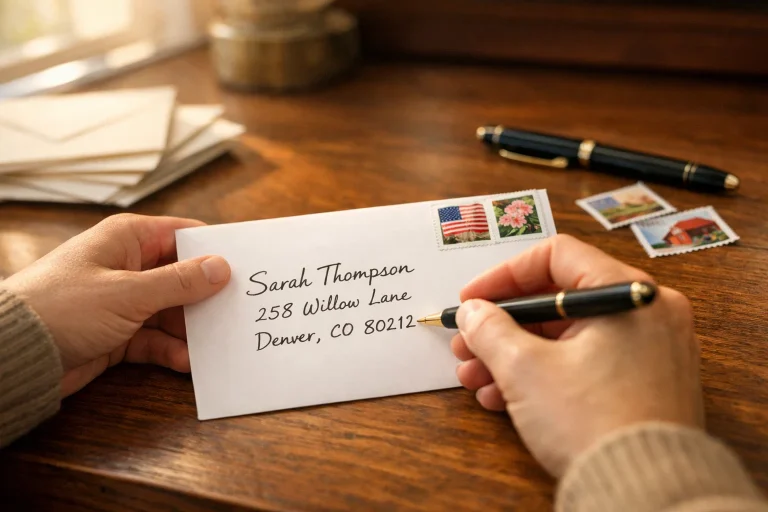 Sarah Thompson
258 Willow Lane
Denver, CO 80212